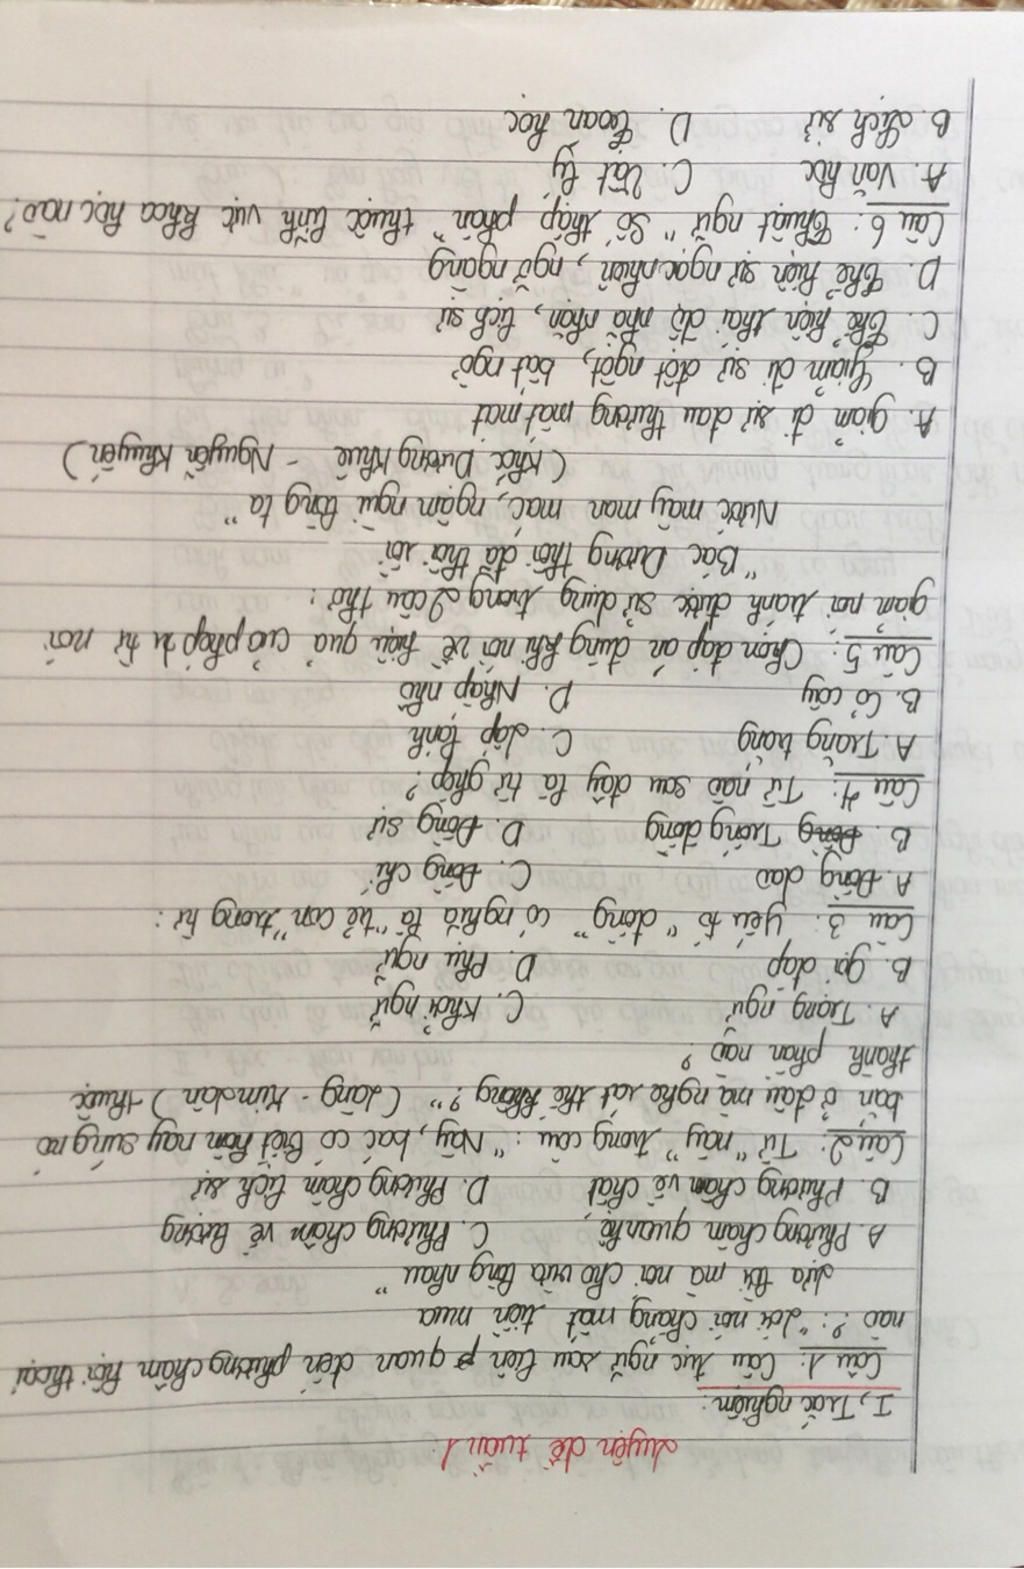 Luyện đề tuần 1
I, Trắc nghiệm:
Câu 1: Câu tục ngữ sau liên quan đến phương châm hội thoại
nào ?: "Lời nói chẳng mất tiền mua
Lựa lời mà nói cho vừa lòng nhau"
A. Phương châm quan hệ, C. Phương châm về lượng
B. Phương châm về chất D. Phương châm lịch sự
Câu 2: Từ "này" trong câu: "Này, bác có biết hôm nay súng nó
bắn ở đâu mà nghe rát thế không?" (Làng - Kim Lân) thuộc
thành phần nào ?
A. Trạng ngữ C. Khởi ngữ
B. gọi đáp D. Phụ ngữ
Câu 3: Yếu tố "đồng" có nghĩa là "trẻ con" trong từ:
A. Đồng dao C. Đồng chí
B. Trống đồng D. Đồng sự
Câu 4: Từ nào sau đây là từ ghép?
A. Trăng trắng C. Lấp lánh
B. Cỏ cây D. Nhấp nhô
Câu 5: Chọn đáp án đúng khi nói về hiệu quả của phép tu từ nói
giảm nói tránh được sử dụng trong 2 câu thơ:
"Bác Dương thôi đã thôi rồi
Nước mây man mác, ngậm ngùi lòng ta"
(Khóc Dương Khuê - Nguyễn Khuyến)
A. giảm đi sự đau thương mất mát
B. Giảm đi sự đột ngột, bất ngờ
C. Thể hiện thái độ nhã nhặn, lịch sự
D. Thể hiện sự ngạc nhiên, ngỡ ngàng
Câu 6: Thuật ngữ "Số thập phân" thuộc lĩnh vực khoa học nào?
A. Văn học C. Vật lý
B. Lịch sử D. Toán học